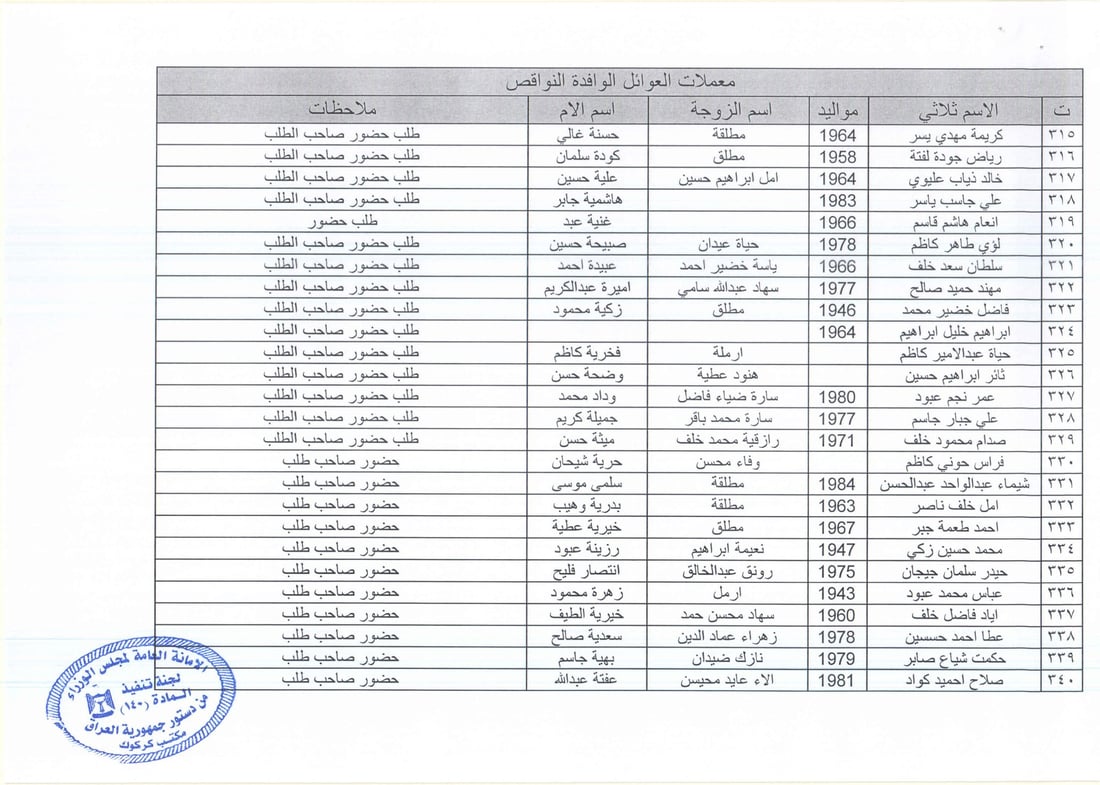 معملات العوائل الوافدة النواقص
ت الاسم ثلاثي مواليد اسم الزوجة اسم الام ملاحظات
٣١٥ كريمة مهدي يسر 1964 مطلقة حسنة غالي طلب حضور صاحب الطلب
٣١٦ رياض جودة لفتة 1958 مطلق كودة سلمان طلب حضور صاحب الطلب
٣١٧ خالد ذياب عليوي 1964 امل ابراهيم حسين علية حسين طلب حضور صاحب الطلب
٣١٨ علي جاسب ياسر 1983 هاشمية جابر طلب حضور صاحب الطلب
٣١٩ انعام هاشم قاسم 1966 غنية عبد طلب حضور
٣٢٠ لؤي طاهر كاظم 1978 حياة عيدان صبيحة حسين طلب حضور صاحب الطلب
٣٢١ سلطان سعد خلف 1966 ياسة خضير احمد عبيدة احمد طلب حضور صاحب الطلب
٣٢٢ مهند حميد صالح 1977 سهاد عبدالله سامي اميرة عبدالكريم طلب حضور صاحب الطلب
٣٢٣ فاضل خضير محمد 1946 مطلق زكية محمود طلب حضور صاحب الطلب
٣٢٤ ابراهيم خليل ابراهيم 1964 طلب حضور صاحب الطلب
٣٢٥ حياة عبدالامير كاظم ارملة فخرية كاظم طلب حضور صاحب الطلب
٣٢٦ ثائر ابراهيم حسين هنود عطية وضحة حسن طلب حضور صاحب الطلب
٣٢٧ عمر نجم عبود 1980 سارة ضياء فاضل وداد محمد طلب حضور صاحب الطلب
٣٢٨ علي جبار جاسم 1977 سارة محمد باقر جميلة كريم طلب حضور صاحب الطلب
٣٢٩ صدام محمود خلف 1971 رازقية محمد خلف ميثة حسن طلب حضور صاحب الطلب
٣٣٠ فراس حوني كاظم وفاء محسن حرية شيحان حضور صاحب طلب
٣٣١ شيماء عبدالواحد عبدالحسن 1984 مطلقة سلمى موسى حضور صاحب طلب
٣٣٢ امل خلف ناصر 1963 مطلقة بدرية وهيب حضور صاحب طلب
٣٣٣ احمد طعمة جبر 1967 مطلق خيرية عطية حضور صاحب طلب
٣٣٤ محمد حسين زكي 1947 نعيمة ابراهيم رزينة عبود حضور صاحب طلب
٣٣٥ حيدر سلمان جيجان 1975 رونق عبدالخالق انتصار فليح حضور صاحب طلب
٣٣٦ عباس محمد عبود 1943 ارمل زهرة محمود حضور صاحب طلب
٣٣٧ اياد فاضل خلف 1960 سهاد محسن حمد خيرية الطيف حضور صاحب طلب
٣٣٨ عطا احمد حسسين 1978 زهراء عماد الدين سعدية صالح حضور صاحب طلب
٣٣٩ حكمت شياع صابر 1979 نازك ضيدان بهية جاسم حضور صاحب طلب
٣٤٠ صلاح احميد كواد 1981 الاء عايد محيسن عفتة عبدالله حضور صاحب طلب
الامانة العامة لمجلس الوزراء
لجنة تنفيذ
المادة (١٤٠)
من دستور جمهورية العراق
مكتب كركوك